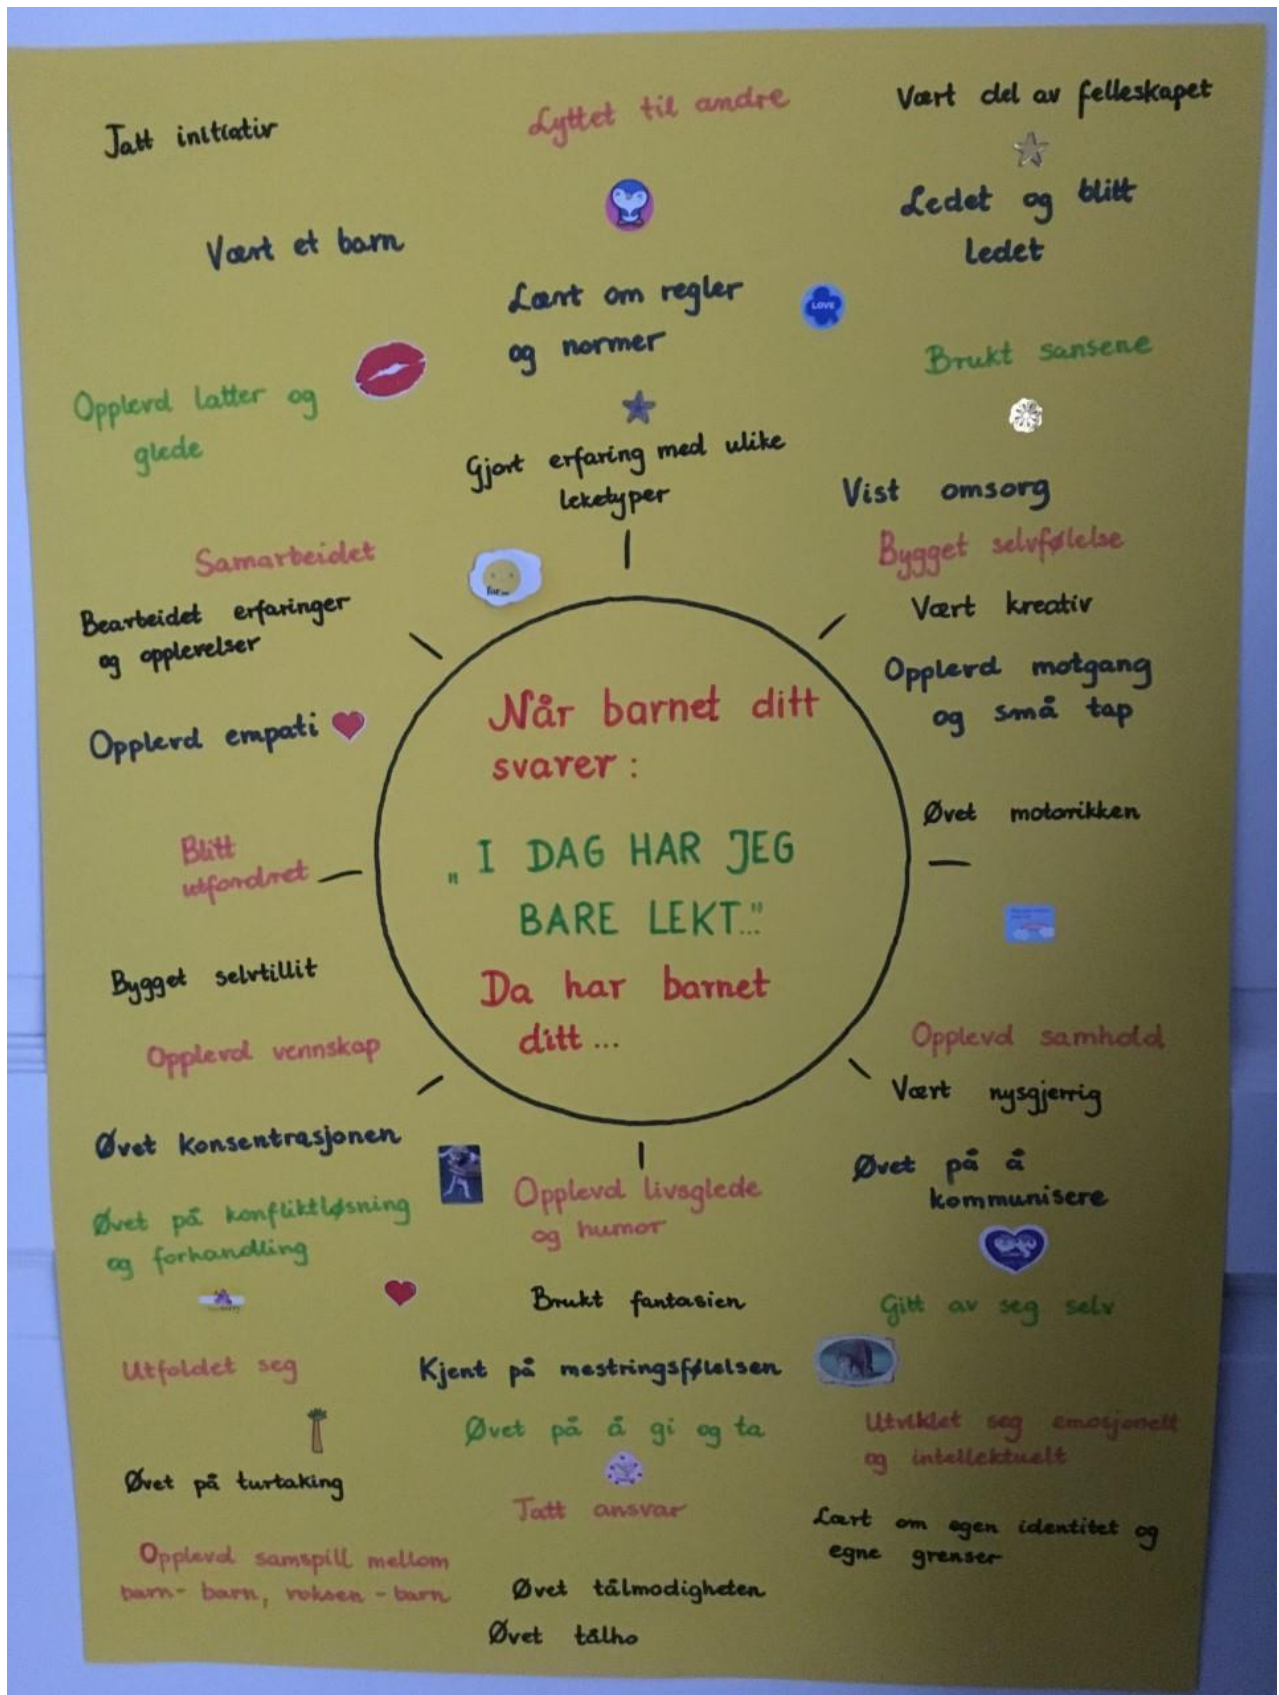 Tatt initiativ
Lyttet til andre
Vært del av felleskapet
Vært et barn
Ledet og blitt
ledet
Lært om regler
og normer
LOVE
Brukt sansene
Opplevd latter og
glede
Gjort erfaring med ulike
leketyper
Vist omsorg
Bygget selvfølelse
Samarbeidet
Bearbeidet erfaringer
og opplevelser
Vært kreativ
Opplevd motgang
og små tap
Opplevd empati
Når barnet ditt
svarer :
„I DAG HAR JEG
BARE LEKT..."
Da har barnet
ditt ...
Øvet motorikken
Blitt
utfordret
Bygget selvtillit
Opplevd vennskap
Opplevd samhold
Vært nysgjerrig
Øvet konsentrasjonen
Øvet på å
kommunisere
Øvet på konfliktløsning
og forhandling
Opplevd livsglede
og humor
Brukt fantasien
Gitt av seg selv
Utfoldet seg
Kjent på mestringsfølelsen
Øvet på å gi og ta
Utviklet seg emosjonelt
og intellektuelt
Øvet på turtaking
Tatt ansvar
Lært om egen identitet og
egne grenser
Opplevd samspill mellom
barn- barn, voksen - barn
Øvet tålmodigheten
Øvet tålho